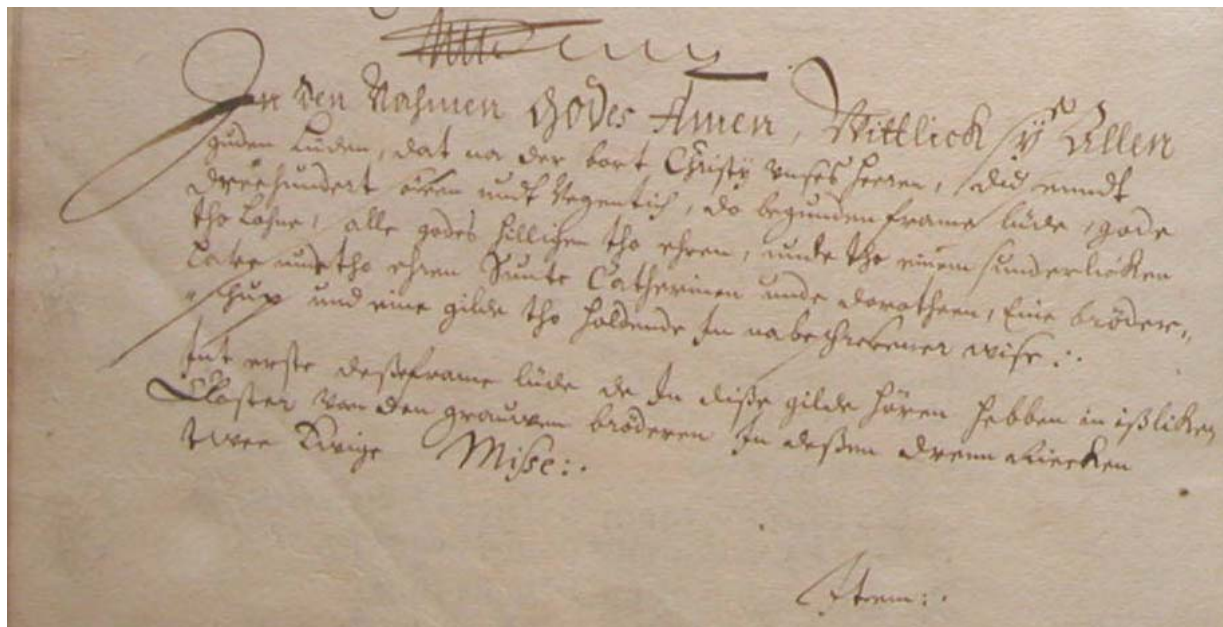 In den Nahmen Godes Amen, Wittlick sÿ Allen
guden Luden, dat na der bort Christÿ unses heeren, did unndt
dreehundert öven undt Negentich, do begunden frame lüde, gode
tho Lohne, alle godes hilligen tho ehren, unde tho einem sunderlicken
Lave unde tho ehren Sunte Catherinen unde dorotheen, Eine bröder„
„schup und eine gilde tho holdende In nabeschrevener wise:.
Int erste deße frame lüde de In diße gilde hören hebben in ißliken
Closter van den grauwen bröderen In deßen dreen
twee Ewige Miße:.
Item:.